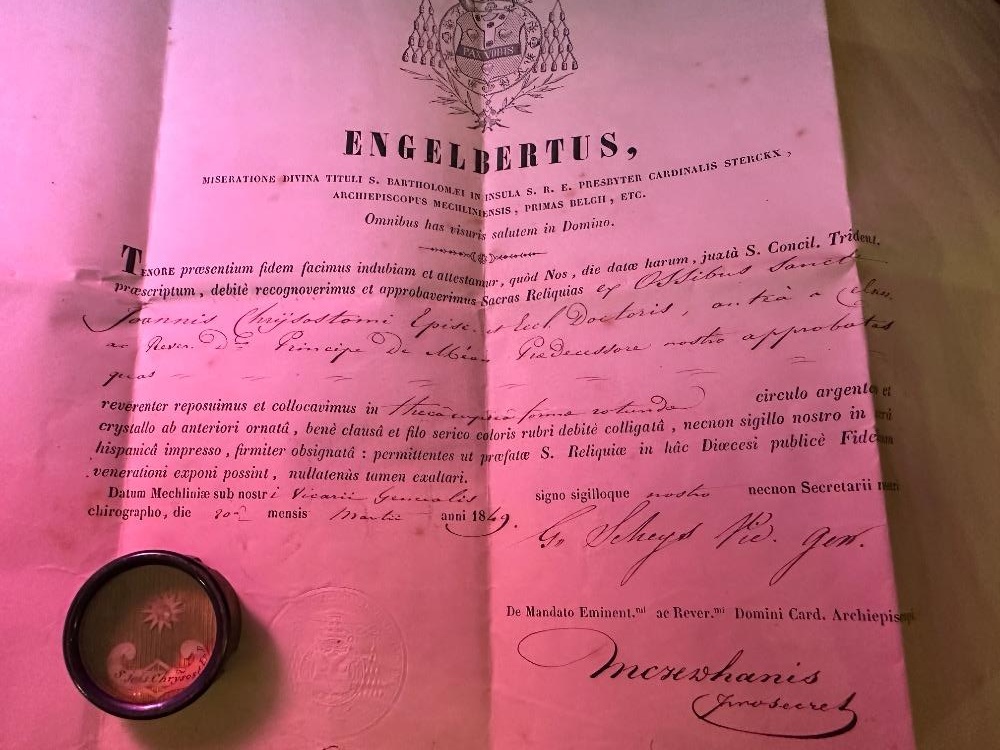 PAX VOBIS
ENGELBERTUS,
MISERATIONE DIVINA TITULI S. BARTHOLOMÆI IN INSULA S. R. E. PRESBYTER CARDINALIS STERCKX,
ARCHIEPISCOPUS MECHLINIENSIS, PRIMAS BELGII, ETC.
Omnibus has visuris salutem in Domino.
TENORE præsentium fidem facimus indubiam et attestamur, quòd Nos, die datæ harum, juxtà S. Concil. Trident.
præscriptum, debitè recognoverimus et approbaverimus Sacras Reliquias ex Ossibus Sancti
Joannis Chrÿsostomi Episc. et Eccl. Doctoris, a Celsis.
ac Rever. D° Principe De Méan Prædecessore nostro approbatas
quas
reverenter reposuimus et collocavimus in thecâ cupreâ formæ rotundæ circulo argenteo et
crystallo ab anteriori ornatâ, benè clausâ et filo serico coloris rubri debitè colligatâ, necnon sigillo nostro in cerâ
hispanicâ impresso, firmiter obsignatâ : permittentes ut præfatæ S. Reliquiæ in hâc Diœcesi publicè Fidelium
venerationi exponi possint, nullatenùs tamen exaltari.
Datum Mechliniæ sub nostri Vicarii Generalis signo sigilloque nostro necnon Secretarii nostri
chirographo, die 20â mensis Martii anni 1849.
G. Scheys Vic. gen.
De Mandato Eminent.mi ac Rever.mi Domini Card. Archiepiscopi
prosecret
S. Jois Chrysost. E. D.